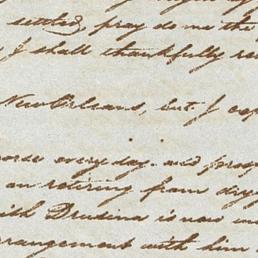 settled, pray do me the
I shall thankfully re
New Orleans, but I exp
orse every day. and prog
an retiring from
ith Drusina is now un
rrangement with him